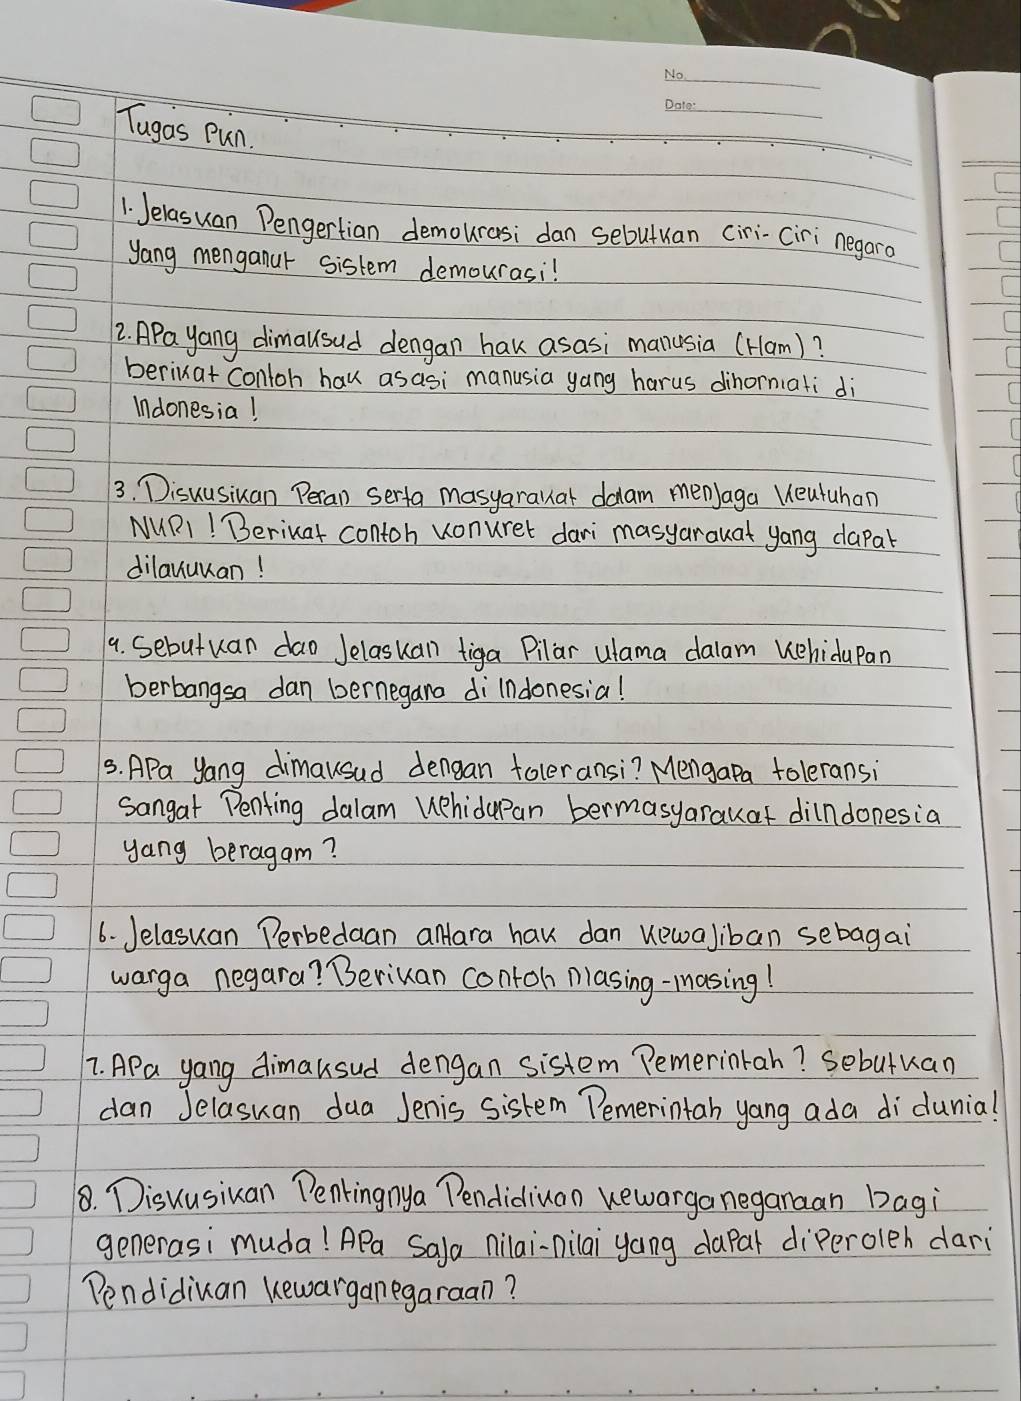 No.
Date:
Tugas Pkn.
1. Jelaskan Pengertian demokrasi dan sebutkan ciri-ciri negara
yang menganut sistem demokrasi!
2. APa yang dimaksud dengan hak asasi manusia (Ham)?
berikat contoh hak asasi manusia yang harus dihormati di
Indonesia!
3. Diskusikan Peran serta masyarakat dalam menjaga keutuhan
NKRI! Berikat contoh konkret dari masyarakat yang dapat
dilakukan!
4. Sebutkan dan Jelaskan tiga Pilar utama dalam kehidupan
berbangsa dan bernegara di Indonesia!
5. APa yang dimaksud dengan toleransi? Mengapa toleransi
sangat Penting dalam kehidupan bermasyarakat diIndonesia
yang beragam?
6. Jelaskan Perbedaan antara hak dan kewajiban sebagai
warga negara? Berikan contoh masing-masing!
7. APa yang dimaksud dengan sistem Pemerintah? sebutkan
dan Jelaskan dua Jenis sistem Pemerintah yang ada di dunia!
8. Diskusikan Pentingnya Pendidikan kewarganegaraan bagi
generasi muda! APa saja nilai-nilai yang dapat diperoleh dari
Pendidikan kewarganegaraan?